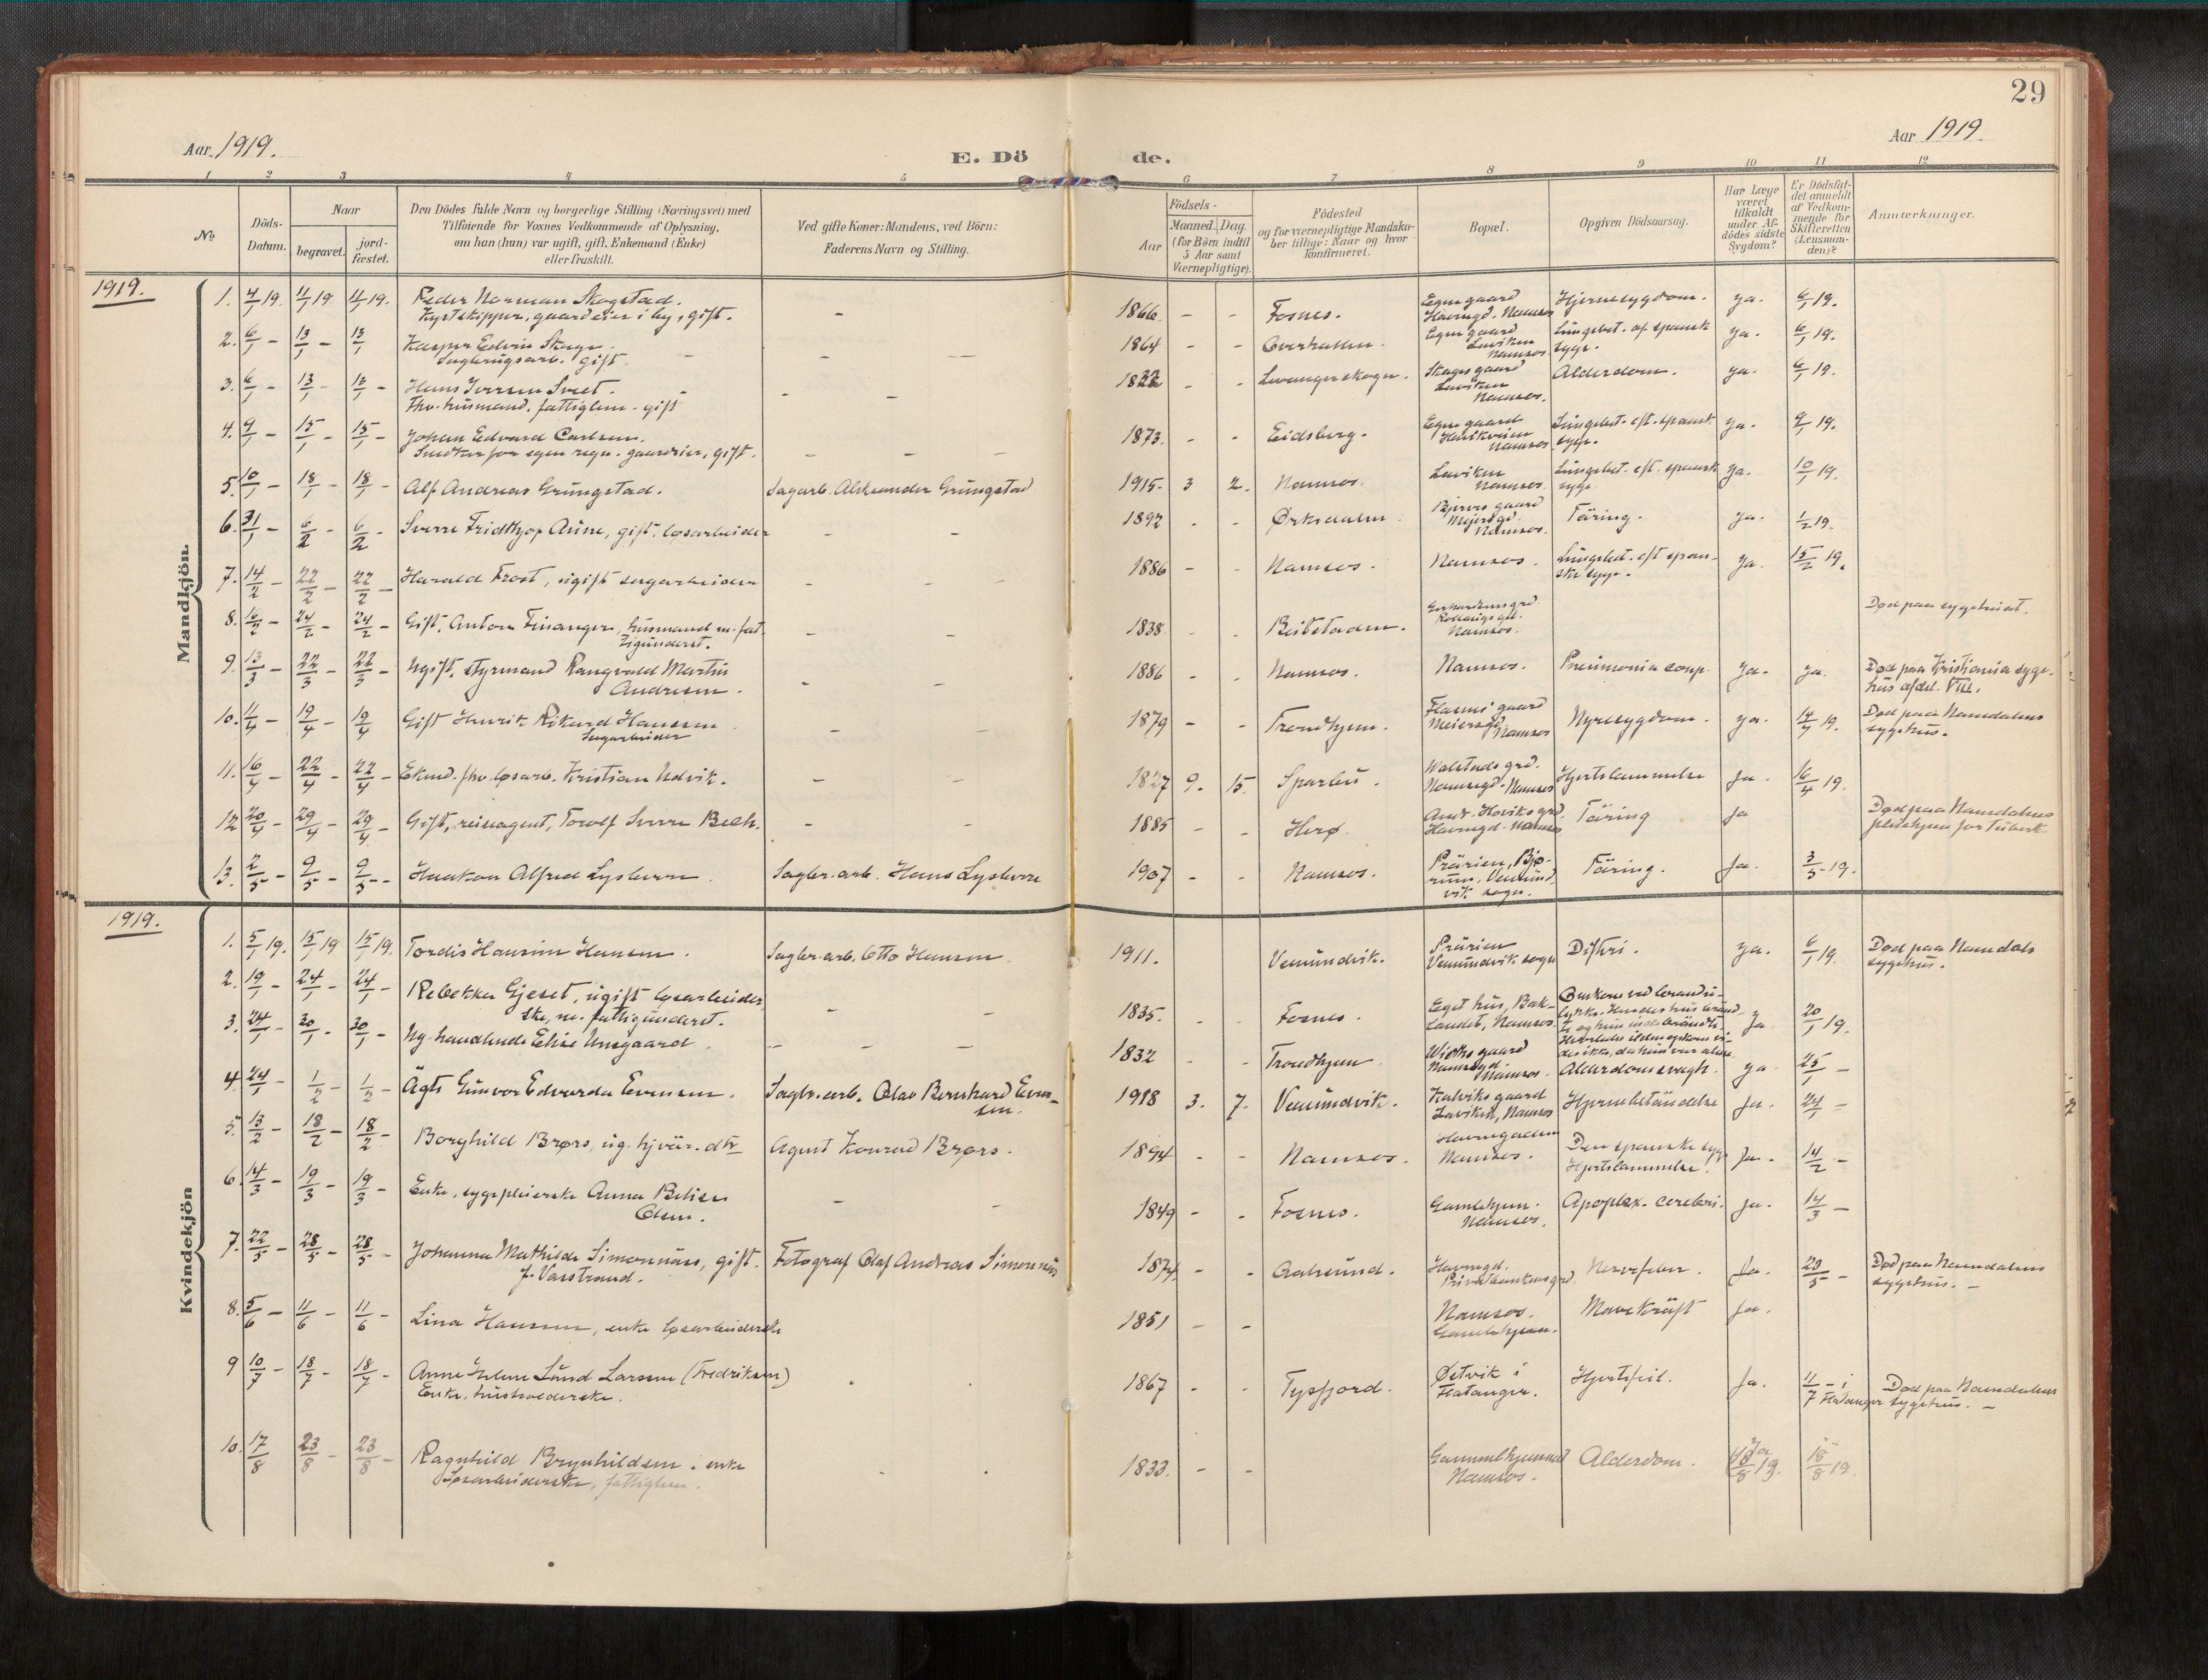 29
Aar 1919.
Aar 1919.
E. Dö de.
1 2 3 4 5 6 7 8 9 10 11 12
No
Döds-Datum.
Naar
begravet. jord-fæstet.
Den Dödes fulde Navn og borgerlige Stilling (Næringsvei) med
Tilföiende for Voxnes Vedkommende af Oplysning,
om han (hun) var ugift, gift, Enkemand (Enke)
eller fraskilt.
Ved gifte Koner: Mandens, ved Börn:
Faderens Navn og Stilling.
Födsels-
Aar
Maaned. Dag.
(for Börn indtil
5 Aar samt
Værnepligtige).
Födested
og for værnepligtige Mandska-
ber tillige: Naar og hvor
konfirmeret.
Bopæl.
Opgiven Dödsaarsag.
Har Læge
været
tilkaldt
under Af-
dödes sidste
Sygdom?
Er Dödsfal-
det anmeldt
af Vedkom-
mende for
Skifteretten
(Lensman-
den)?
Anmerkninger.
1919.
Mandkjön
1. 4/1 19. 11/1 19 11/1 19. Peder Norman Skogstad. – 1866 – – Fosnes. Egen gaard Hjernesygdom. ja. 6/1 19.
Kystskipper, gaardeier i by, gift. Havnegd. Namsos
2. 6/1 – 13/1 – 13/1 Kasper Edvin Skage. – 1864 – – Overhallen. Egen gaard Lungebet. af spansk ja. 6/1 19.
Sagbrugsarb. gift. Laviken Namsos syge.
3. 6/1 – 13/1 – 13/1 – Hans Iversen – – 1822 – – Levangerskogn. Skages gaard Alderdom. ja. 6/1 19.
Fhv. husmand, fattiglem. gift Laviken Namsos.
4. 9/1 – 15/1 – 15/1 – Johan Edvard Carlsen. 1873. – – Eidsberg. Egen gaard Lungebet. eft. spansk ja. 9/1 19.
Snedker for egen regn. gaardeier, gift. – – – Namsos syge.
5. 10/1 – 18/1 – 18/1 – Alf Andreas Grungstad. Sagarb. Aleksander Grungstad 1915. 3 2. Namsos. Laviken Namsos. Lungebet. eft. spansk syge ja. 10/1 19.
6. 31/1 – 6/2 – 6/2 – Sverre Fridthjof Aune, gift, løsarbeider – – 1892 – – Ørkedalen gaard Meiersgd. Namsos. Tæring. ja. 1/2 19.
7. 14/2 – 22/2 – 22/2 – Harald Frost, ugift sagarbeider – – – 1886 – – Namsos. Namsos. Lungebet. eft spanske syge. ja. 15/2 19.
8. 16/2 – 24/2 – 24/2 – Gift, Anton Finanger, husmand m. fattigunderst. – – 1838 – – Beitstaden. Namsos. Død paa sygehuset.
9. 13/3 – 22/3 – 22/3 – Ugift, styrmand Rangvald Martin – – 1886 – – Namsos. Namsos. Pneumonia coup. ja. ja. Død paa Kristiania syge-
Andresen. hus afdel. VIII.
10. 11/4 – 19/4 – 19/4 Gift Henrik Rikard Hanssen – – 1879 – – Trondhjem. gaard Meiersgd Namsos Nyresygdom. ja. 14/4 19. Død paa Namdalens
Sagarbeider sygehus.
11. 16/4 – 22/4 – 22/4 – Ekmd. fhv. løsarb. Kristian Udvik. – – 1827 9. 15. Sparbu. Walstads grd. Hjertelammelse Ja. 16/4 19.
Namsos
12 20/4 – 29/4 – 29/4 – Gift, reiseagent, Torolf Sverre Bech. – – 1885 – – Herø. Andr. Haviks grd. Tæring Ja Død paa Namdalens
Havnegd. Namsos pleiehjem for tuberk.
13. 2/5 – 9/5 – 9/5 – Haakon Alfred Lysberg Sagbr. arb. Hans Lysberg 1907 – – Namsos. Prärien, Bjø- Tæring. Ja. 3/5 19.
rum, Vemund-
vik sogn.
1919.
Kvindekjön
1. 5/1 19. 15/1 19 15/1 19. Tordis Hansine Hansen. Sagbr. arb. Otto Hansen. 1911. Vemundvik. Prärien Difteri. ja. 6/1 19. Død paa Namdals
Vemundvik sogn sygehus.
2. 19/1 – 24/1 – 24/1 – Rebekka Gjeset, ugift løsarbeider – – 1835. – – Fosnes. Eget hus, Bak- Omkom ved brandu- Ja 20/1 19.
ske, m. fattigunderst. landet, Namsos. lykke. Hendes hus brænd-
te og hun indebrændte.
3. 24/1 – 30/1 – 30/1 – Ug. handlende Elise Unsgaard – – – 1832 – – Trondhjem gaard Namsos. Alderdomsvagh. ja 25/1 –
4. 24/1 – 1/2 – 1/2 – Ægte Gunvor Edvarda Evensen. Sagbr. arb. Olav Bernhard Even- 1918 3. 7. Vemundvik. Kalviks gaard Hjernebetændelse Ja. 24/1 –
sen. Laviken, Namsos
5. 13/2 – 18/2 – 18/2 – Borghild Brørs, ug. hjvær. dtr Agent Konrad Brørs. 1894 – – Namsos. Havnegaden Den spanske syge Ja. 14/2 –
Namsos. Hjertelammelse.
6 14/3 – 19/3 – 19/3 – Enke, sygepleierske Anna – – 1849 – – Fosnes. Gamlehjem. Apoplex. cerebri. Ja. 14/3 –
Olsen. Namsos.
7. 22/5 – 28/5 – 28/5 – Johanna Mathilde Simonnæs, gift. Fotograf Olaf Andreas Simonnæs 1874. – – Aalesund. Havnegd. Nervefeber. Ja. 23/5 – Død paa Namdalens
f. Vasstrand. Privatbankens grd. sygehus. –
8. 5/6 – 11/6 – 11/6 – Lina Hanssen, enke løsarbeiderske 1851 – – Namsos. Mavekræft Ja.
Gamlehjem.
9 10/7 – 18/7 – 18/7 – Anne Lund Larssen (Fredriksen) 1867 – – Tysfjord. Østvik i Hjertefeil. Ja. 11/7 – i Død paa Namdalens
Enke, husholderske. Flatanger. Flatanger sygehus. –
10. 17/8 23/8 – 23/8 – Ragnhild Brynhildsen. enke 1833. – – Gammelhjemmet Alderdom. Ja 18/8 19. 18/8 19.
Løsarbeiderske, fattiglem. Namsos.